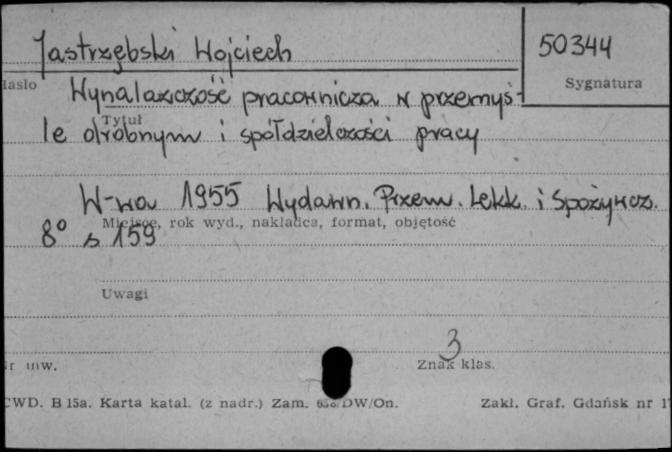 Jastrzębski Wojciech
50344
Hasło
Sygnatura
Wynalazczość pracownicza w przemyś-
Tytuł
le drobnym i spółdzielczości pracy
W-wa 1955 Wydawn. Przem. Lekk. i Spożywcz.
Miejsce, rok wyd., nakładca, format, objętość
8° s 159
Uwagi
3
Nr inw.
Znak klas.
CWD. B 15a. Karta katal. (z nadr.) Zam. DW/On.
Zakł. Graf. Gdańsk nr